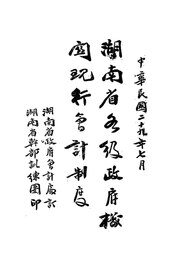 中華民國二十九年七月
湖南省各級政府機
關現行會計制度
湖南省政府會計處訂
湖南省幹部訓練團印